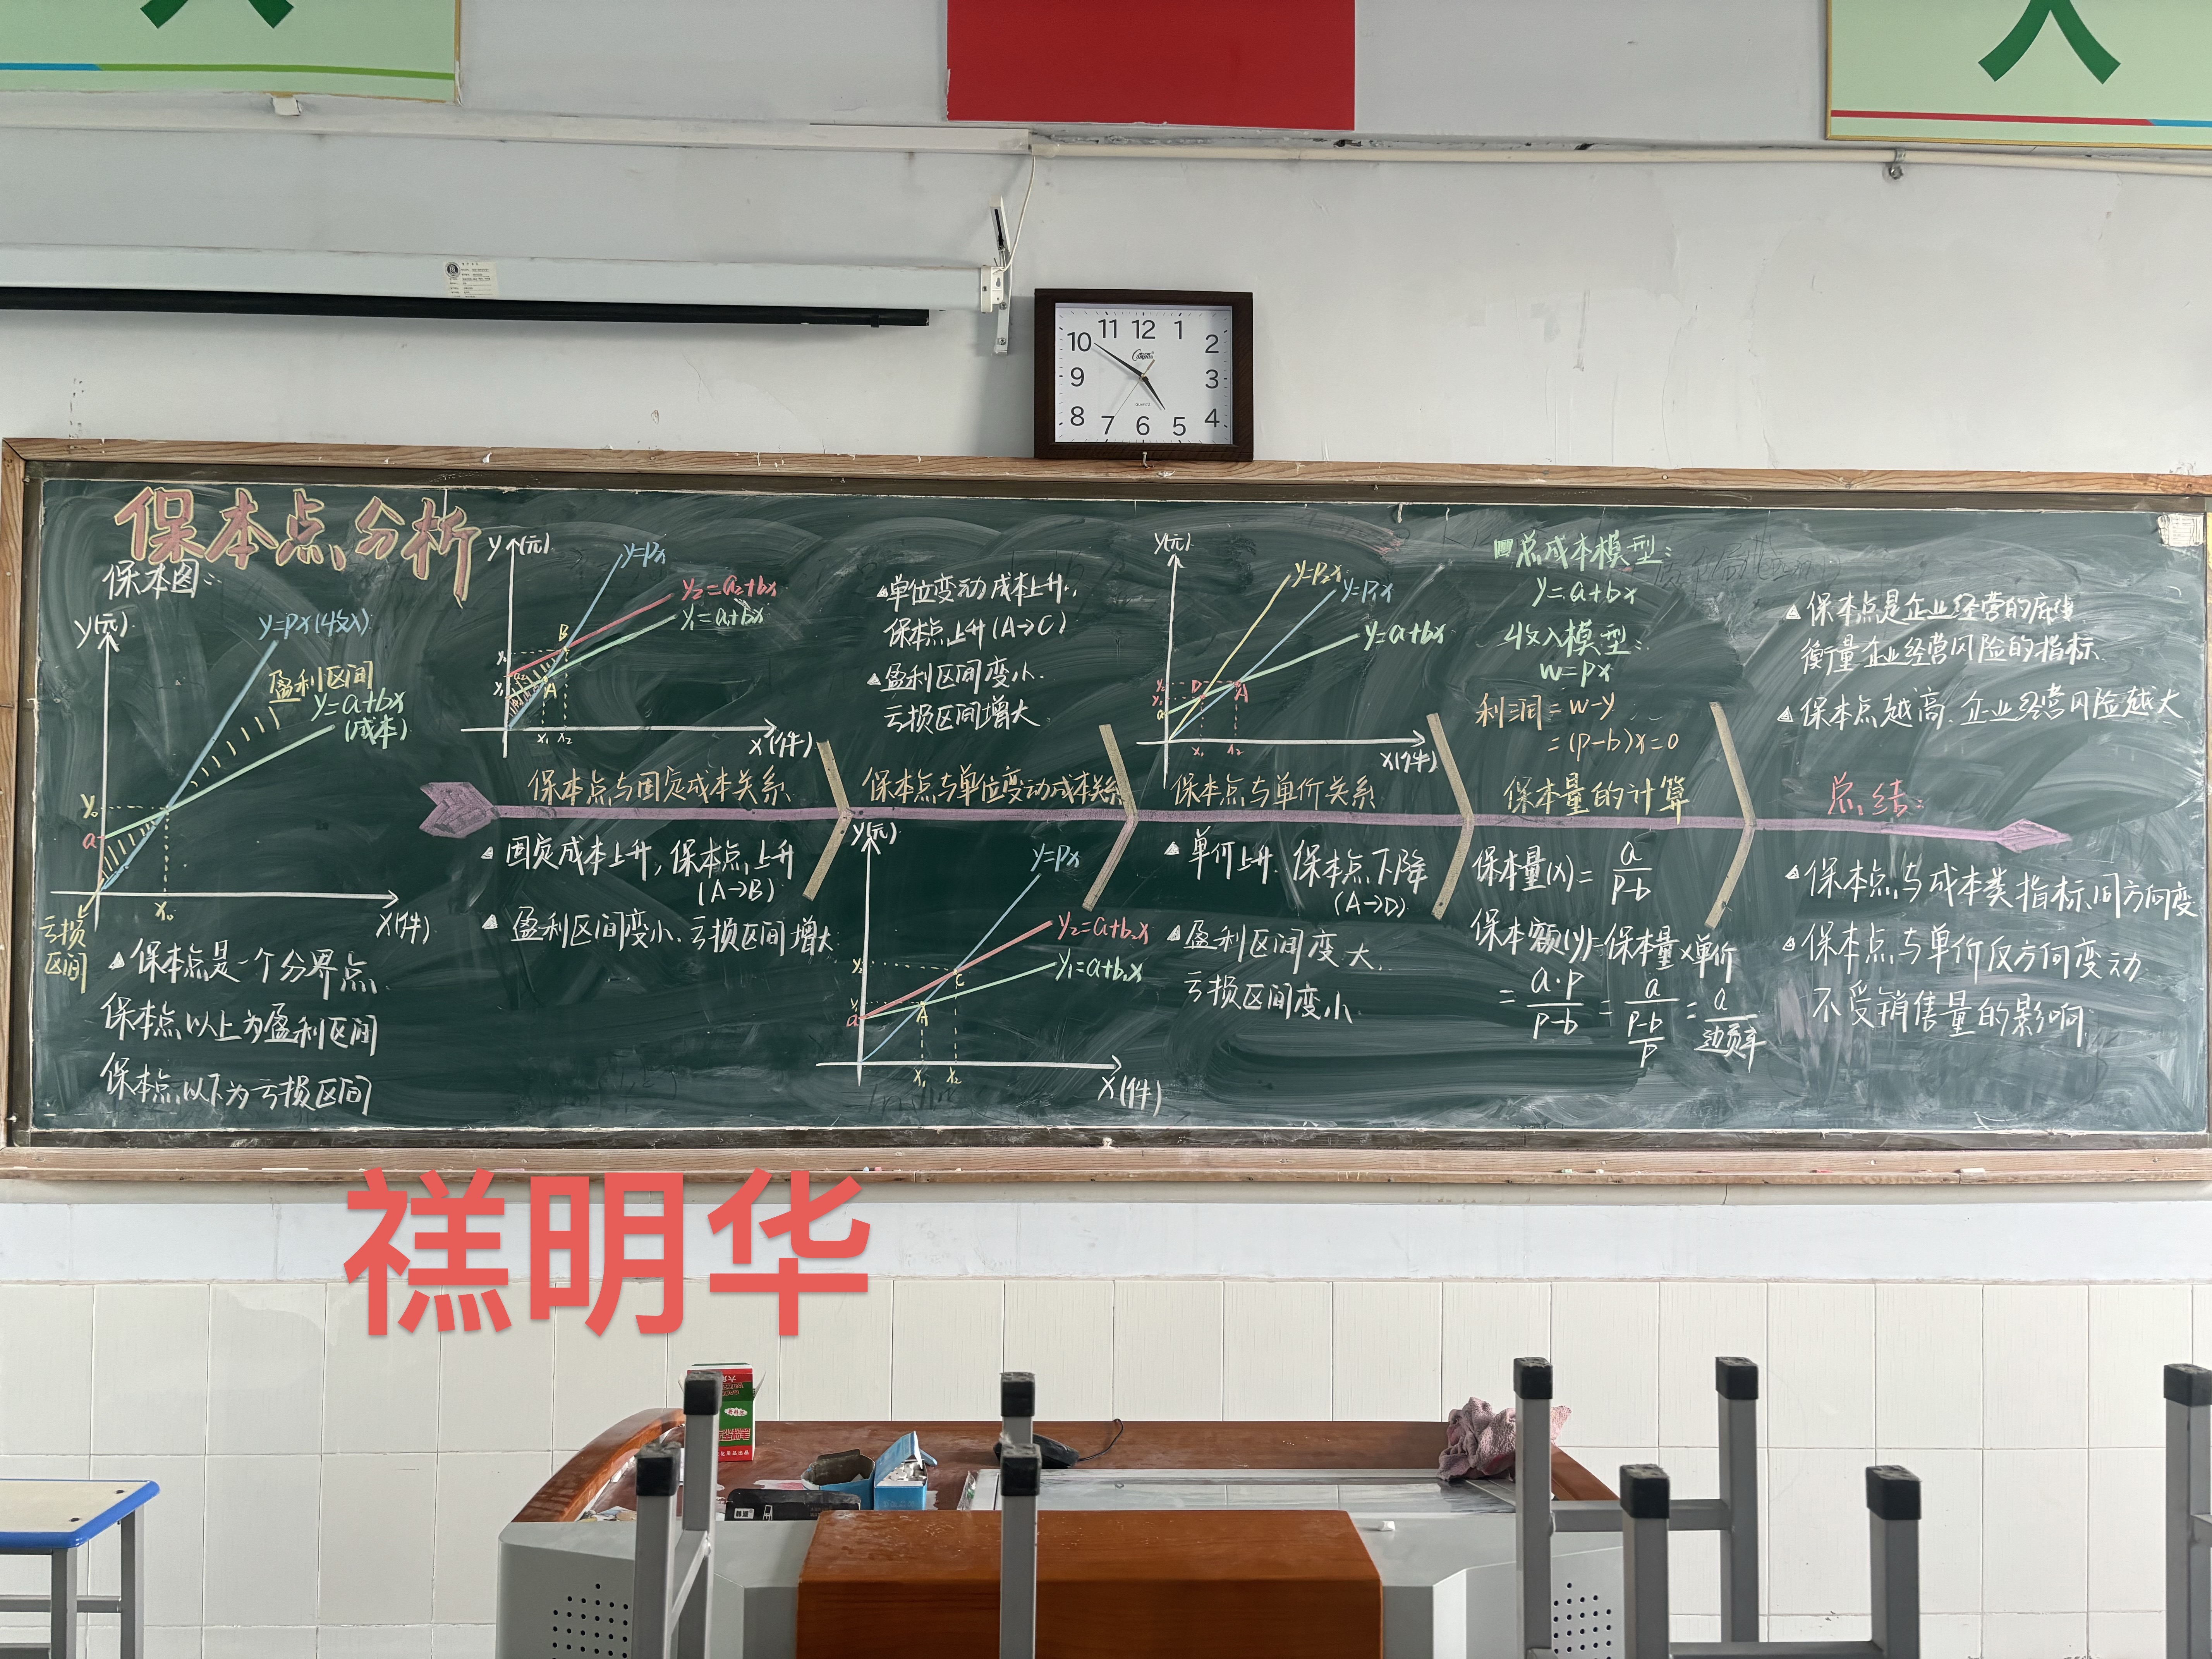 人
人
11 12 1
10 2
9 3
8 4
7 6 5
QUARTZ
保本点分析
保本图:
y(元)
y=px(收入)
盈利区间
y=a+bx
(成本)
y₀
a
x₀
x(件)
亏损
区间
▲保本点是一个分界点
保本点以上为盈利区间
保本点以下为亏损区间
y(元)
y=px
y₂=a₂+bx
y₁=a₁+bx
B
A
x₁ x₂
x(件)
保本点与固定成本关系
▲固定成本上升,保本点上升
(A→B)
▲盈利区间变小、亏损区间增大
▲单位变动成本上升,
保本点上升(A→C)
▲盈利区间变小
亏损区间增大
保本点与单位变动成本关系
y(元)
y=px
y₂=a+b₂x
y₁=a+b₁x
C
A
a
x₁ x₂
x(件)
y(元)
y=P₂x
y=P₁x
y=a+bx
D A
a
x₁ x₂
x(件)
保本点与单价关系
▲单价上升,保本点下降
(A→D)
▲盈利区间变大
亏损区间变小
总成本模型:
y=a+bx
收入模型:
w=px
利润=w-y
=(p-b)x=0
保本量的计算
保本量(x)=a/(p-b)
保本额(y)=保本量×单价
=a·p/(p-b)=a/((p-b)/p)=a/边贡率
▲保本点是企业经营的底线
衡量企业经营风险的指标
▲保本点越高,企业经营风险越大
总结:
▲保本点与成本类指标同方向变
▲保本点与单价反方向变动
不受销售量的影响
禚明华